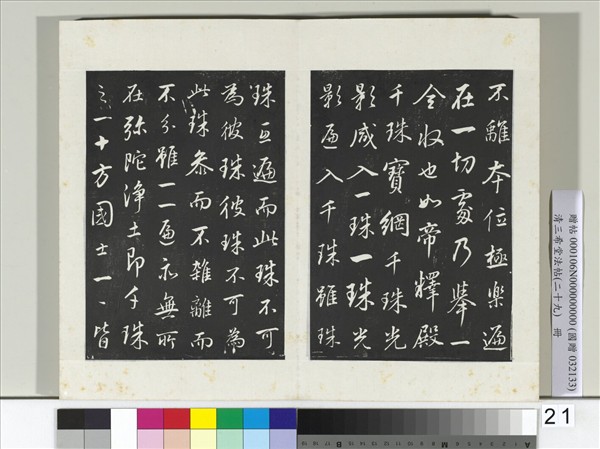 不離本位極樂遍
在一切處乃舉一
全收也如帝釋殿
千珠寶網千珠光
影咸入一珠一珠光
影遍入千珠雖珠
珠互遍而此珠不可
為彼珠彼珠不可為
此珠參而不雜離而
不分雖一一遍亦無所
在弥陀淨土即千珠
之一十方國土一一皆
贈帖 000106N000000000 (國贈 032133)
清三希堂法帖(二十九) 冊
21